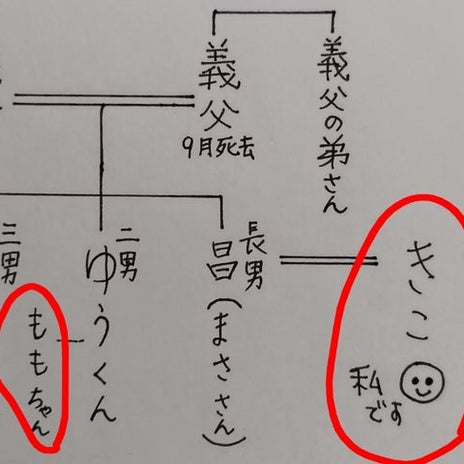 義父の弟さん
義父
9月死去
きこ
私
です
長男
昌(まささん)
二男
ゆうくん
ももちゃん
三男